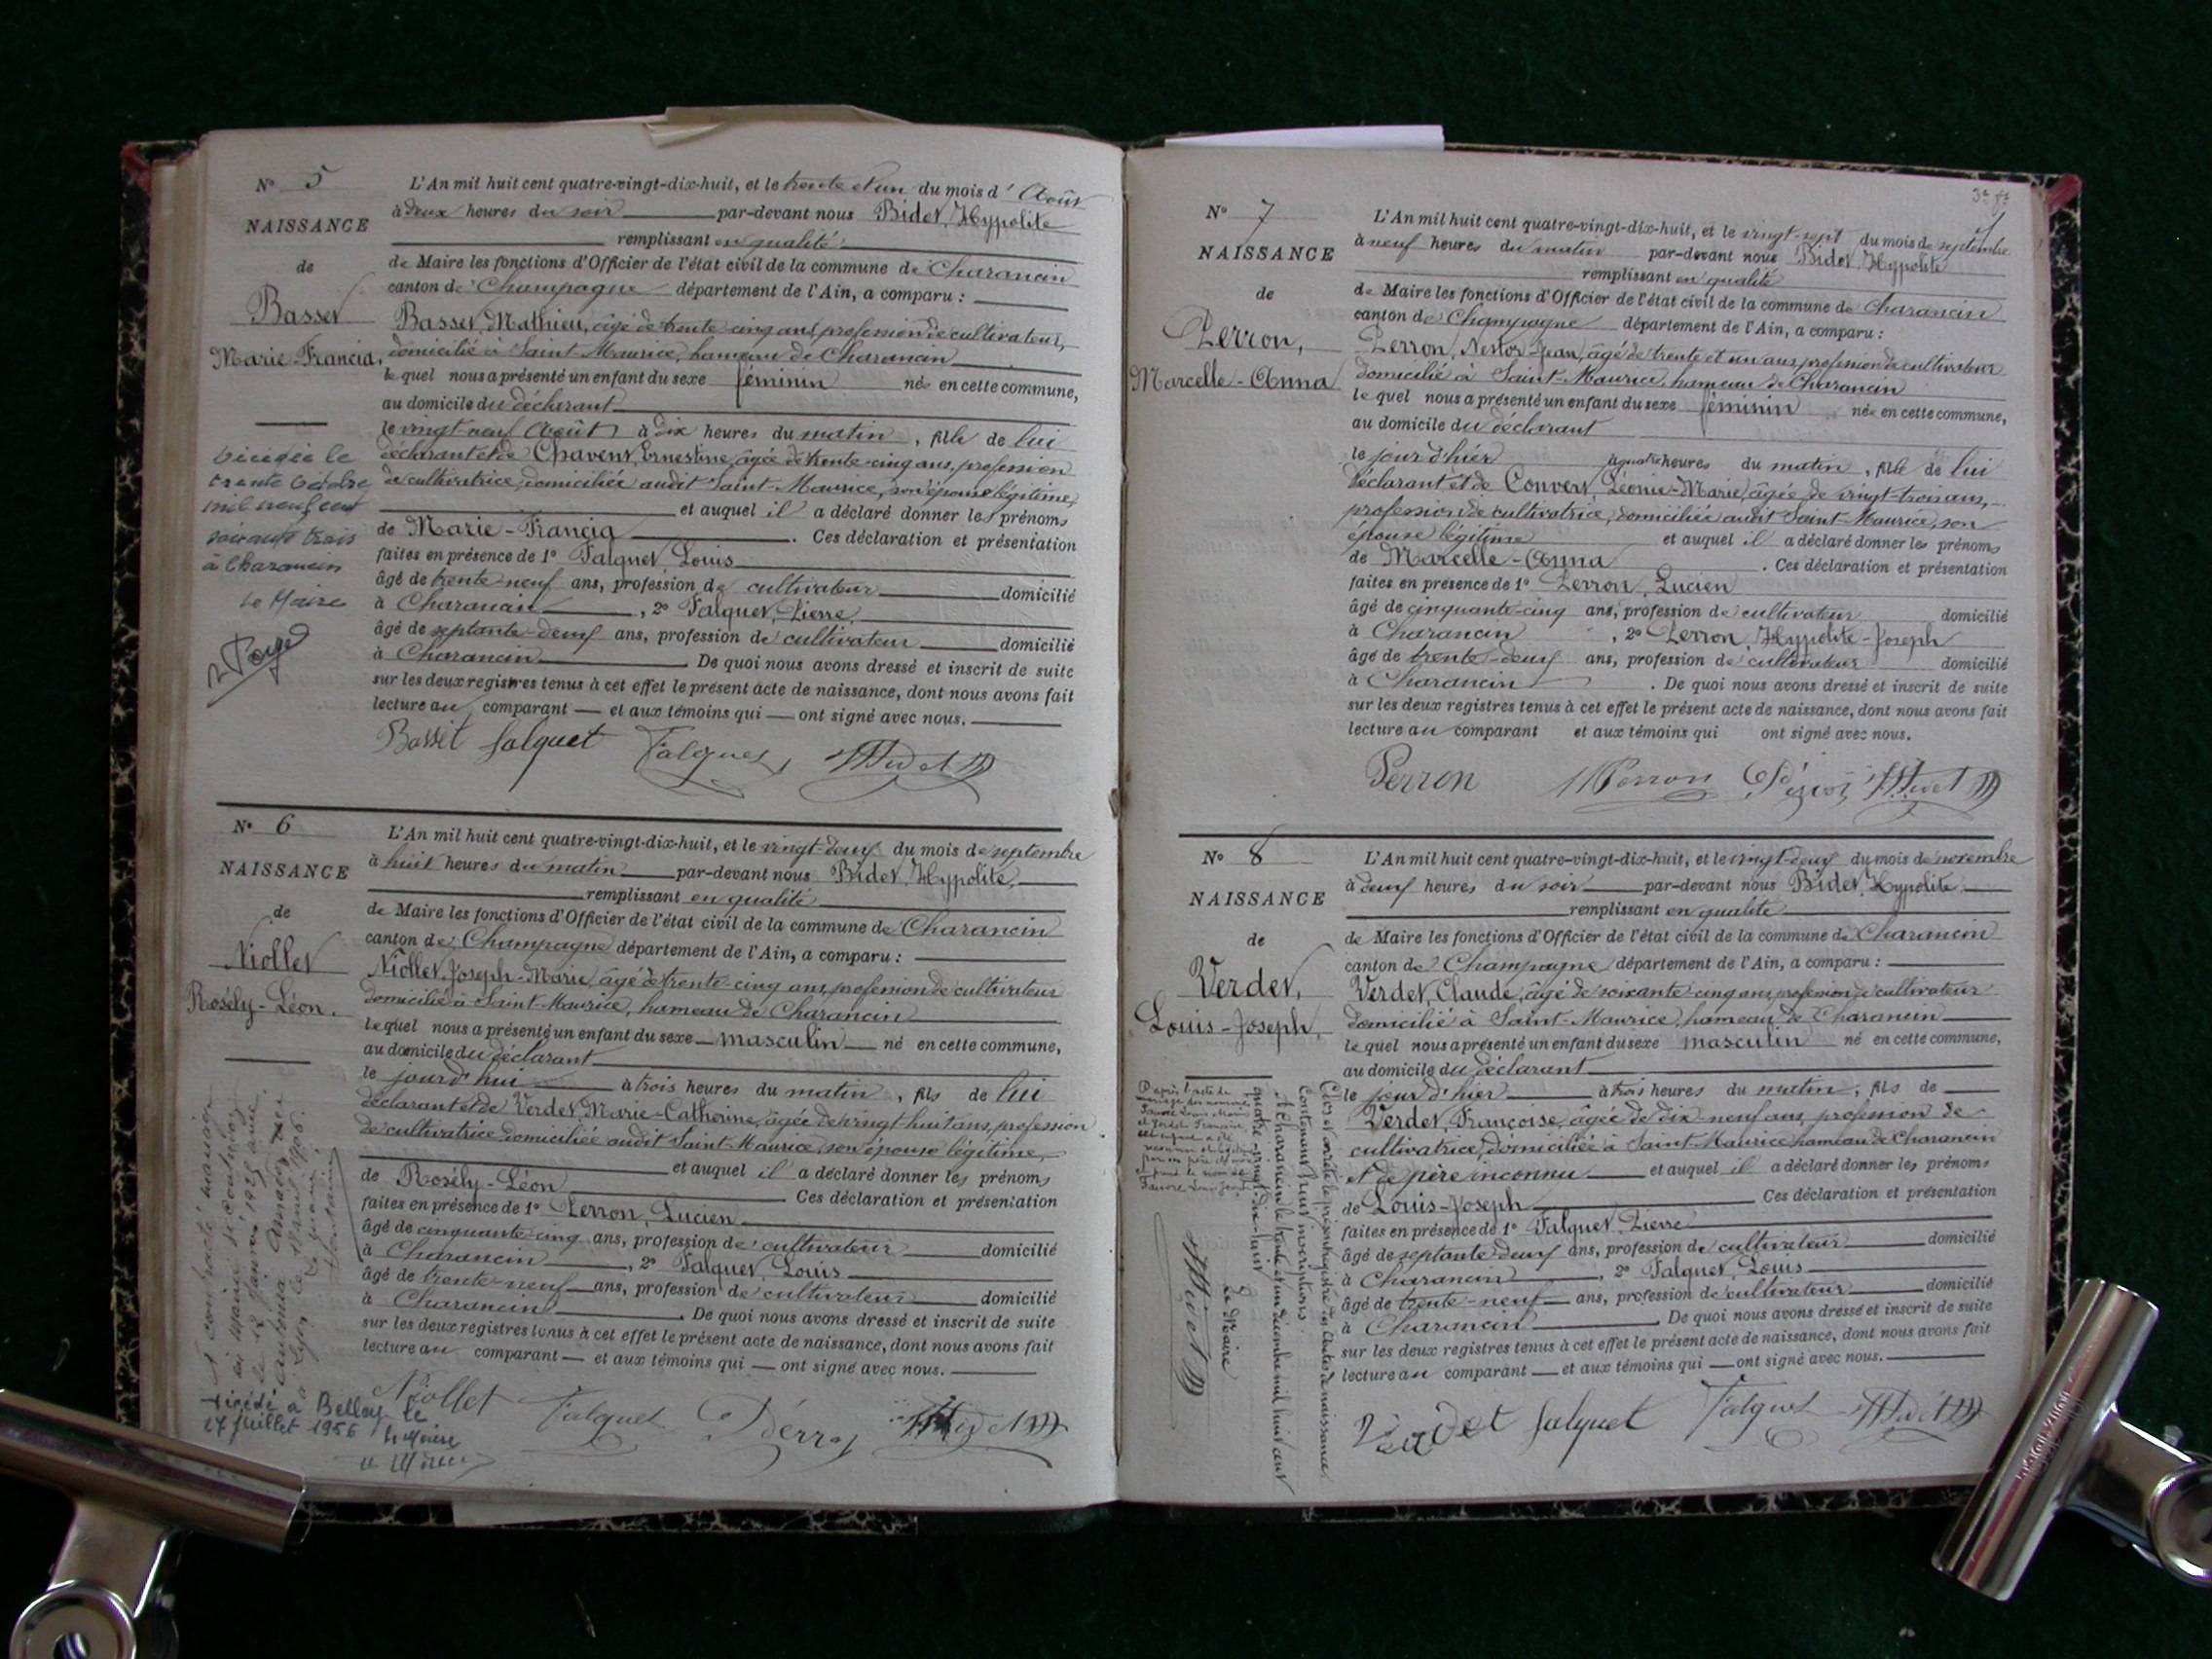 N° 5
NAISSANCE
de
Basset
Marie-Francia,
Décédée le
trente Octobre
mil neuf cent
soixante trois
à Charancin
Le Maire
L'An mil huit cent quatre-vingt-dix-huit, et le trente et un du mois d'Août
à deux heures du soir par-devant nous Bidet, Hypolite
remplissant en qualité
de Maire les fonctions d'Officier de l'état civil de la commune de Charancin
canton de Champagne département de l'Ain, a comparu :
Basset, Mathieu, âgé de trente-cinq ans, profession de cultivateur,
domicilié à Saint-Maurice, hameau de Charancin
lequel nous a présenté un enfant du sexe féminin née en cette commune,
au domicile du déclarant
le vingt-neuf Août à dix heures du matin, fille de lui
déclarant et de Chavent, Ernestine, âgée de trente-cinq ans, profession
de cultivatrice, domiciliée audit Saint-Maurice, son épouse légitime,
et auquel il a déclaré donner les prénoms
de Marie-Francia. Ces déclaration et présentation
faites en présence de 1° Falquet, Louis
âgé de trente-neuf ans, profession de cultivateur domicilié
à Charancin, 2° Falquet, Pierre,
âgé de septante-deux ans, profession de cultivateur domicilié
à Charancin. De quoi nous avons dressé et inscrit de suite
sur les deux registres tenus à cet effet le présent acte de naissance, dont nous avons fait
lecture au comparant — et aux témoins qui — ont signé avec nous.
Basset falquet Falquet HBidet
N° 6
NAISSANCE
de
Niollet
Rosély-Léon.
A contracté mariage
en mairie d
le 12 janvier 1925 avec
décédé à Belley le
27 Juillet 1956
le Maire
L'An mil huit cent quatre-vingt-dix-huit, et le vingt-deux du mois de septembre
à huit heures du matin par-devant nous Bidet, Hypolite,
remplissant en qualité
de Maire les fonctions d'Officier de l'état civil de la commune de Charancin
canton de Champagne département de l'Ain, a comparu :
Niollet, Joseph-Marie, âgé de trente-cinq ans, profession de cultivateur
domicilié à Saint-Maurice, hameau de Charancin
lequel nous a présenté un enfant du sexe masculin né en cette commune,
au domicile du déclarant
le jourd'hui à trois heures du matin, fils de lui
déclarant et de Verdet, Marie-Catherine, âgée de vingt-huit ans, profession
de cultivatrice domiciliée audit Saint-Maurice, son épouse légitime,
et auquel il a déclaré donner les prénoms
de Rosély-Léon. Ces déclaration et présentation
faites en présence de 1° Perron, Lucien
âgé de cinquante-cinq ans, profession de cultivateur domicilié
à Charancin, 2° Falquet, Louis
âgé de trente-neuf ans, profession de cultivateur domicilié
à Charancin. De quoi nous avons dressé et inscrit de suite
sur les deux registres tenus à cet effet le présent acte de naissance, dont nous avons fait
lecture au comparant — et aux témoins qui — ont signé avec nous.
Niollet Falquet Pérron HBidet
N° 7
NAISSANCE
de
Perron,
Marcelle-Anna
L'An mil huit cent quatre-vingt-dix-huit, et le vingt-sept du mois de septembre
à neuf heures du matin par-devant nous Bidet, Hypolite
remplissant en qualité
de Maire les fonctions d'Officier de l'état civil de la commune de Charancin
canton de Champagne département de l'Ain, a comparu :
Perron, Nestor-Jean, âgé de trente et un ans, profession de cultivateur
domicilié à Saint-Maurice, hameau de Charancin
lequel nous a présenté un enfant du sexe féminin née en cette commune,
au domicile du déclarant
le jour d'hier à quatre heures du matin, fille de lui
déclarant et de Convert, Léonie-Marie, âgée de vingt-trois ans,
profession de cultivatrice, domiciliée audit Saint-Maurice, son
épouse légitime et auquel il a déclaré donner les prénoms
de Marcelle-Anna. Ces déclaration et présentation
faites en présence de 1° Perron, Lucien
âgé de cinquante-cinq ans, profession de cultivateur domicilié
à Charancin, 2° Perron, Hypolite-Joseph
âgé de trente-deux ans, profession de cultivateur domicilié
à Charancin. De quoi nous avons dressé et inscrit de suite
sur les deux registres tenus à cet effet le présent acte de naissance, dont nous avons fait
lecture au comparant et aux témoins qui ont signé avec nous.
Perron HPerron HBidet
N° 8
NAISSANCE
de
Verdet,
Louis-Joseph,
D'après l'acte de
mariage
L'An mil huit cent quatre-vingt-dix-huit, et le vingt-deux du mois de novembre
à deux heures du soir par-devant nous Bidet, Hypolite
remplissant en qualité
de Maire les fonctions d'Officier de l'état civil de la commune de Charancin
canton de Champagne département de l'Ain, a comparu :
Verdet, Claude, âgé de soixante-cinq ans, profession de cultivateur
domicilié à Saint-Maurice, hameau de Charancin
lequel nous a présenté un enfant du sexe masculin né en cette commune,
au domicile du déclarant
le jour d'hier à trois heures du matin, fils de
Verdet, Françoise, âgée de dix-neuf ans, profession de
cultivatrice, domiciliée à Saint-Maurice hameau de Charancin
et de père inconnu et auquel il a déclaré donner les prénoms
de Louis-Joseph Ces déclaration et présentation
faites en présence de 1° Falquet, Pierre
âgé de septante-deux ans, profession de cultivateur domicilié
à Charancin, 2° Falquet, Louis
âgé de trente-neuf ans, profession de cultivateur domicilié
à Charancin. De quoi nous avons dressé et inscrit de suite
sur les deux registres tenus à cet effet le présent acte de naissance, dont nous avons fait
lecture au comparant — et aux témoins qui — ont signé avec nous.
Verdet falquet Falquet HBidet
Clos et arrêté le présent registre des Actes de naissance
contenant huit inscriptions.
A Charancin le trente et un décembre mil huit cent
quatre-vingt-dix-huit
Le Maire
HBidet